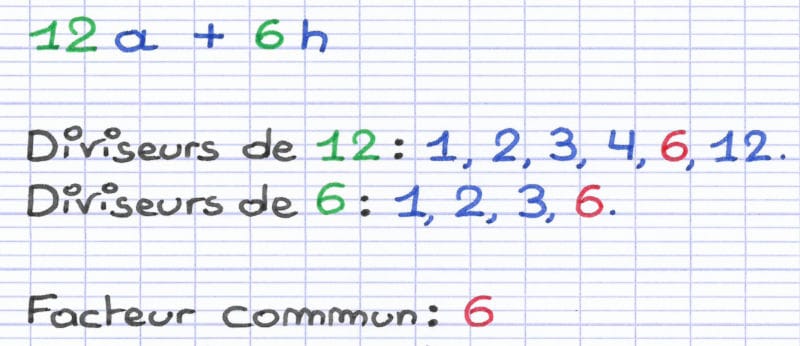 12a + 6h
Diviseurs de 12 : 1, 2, 3, 4, 6, 12.
Diviseurs de 6 : 1, 2, 3, 6.
Facteur commun : 6